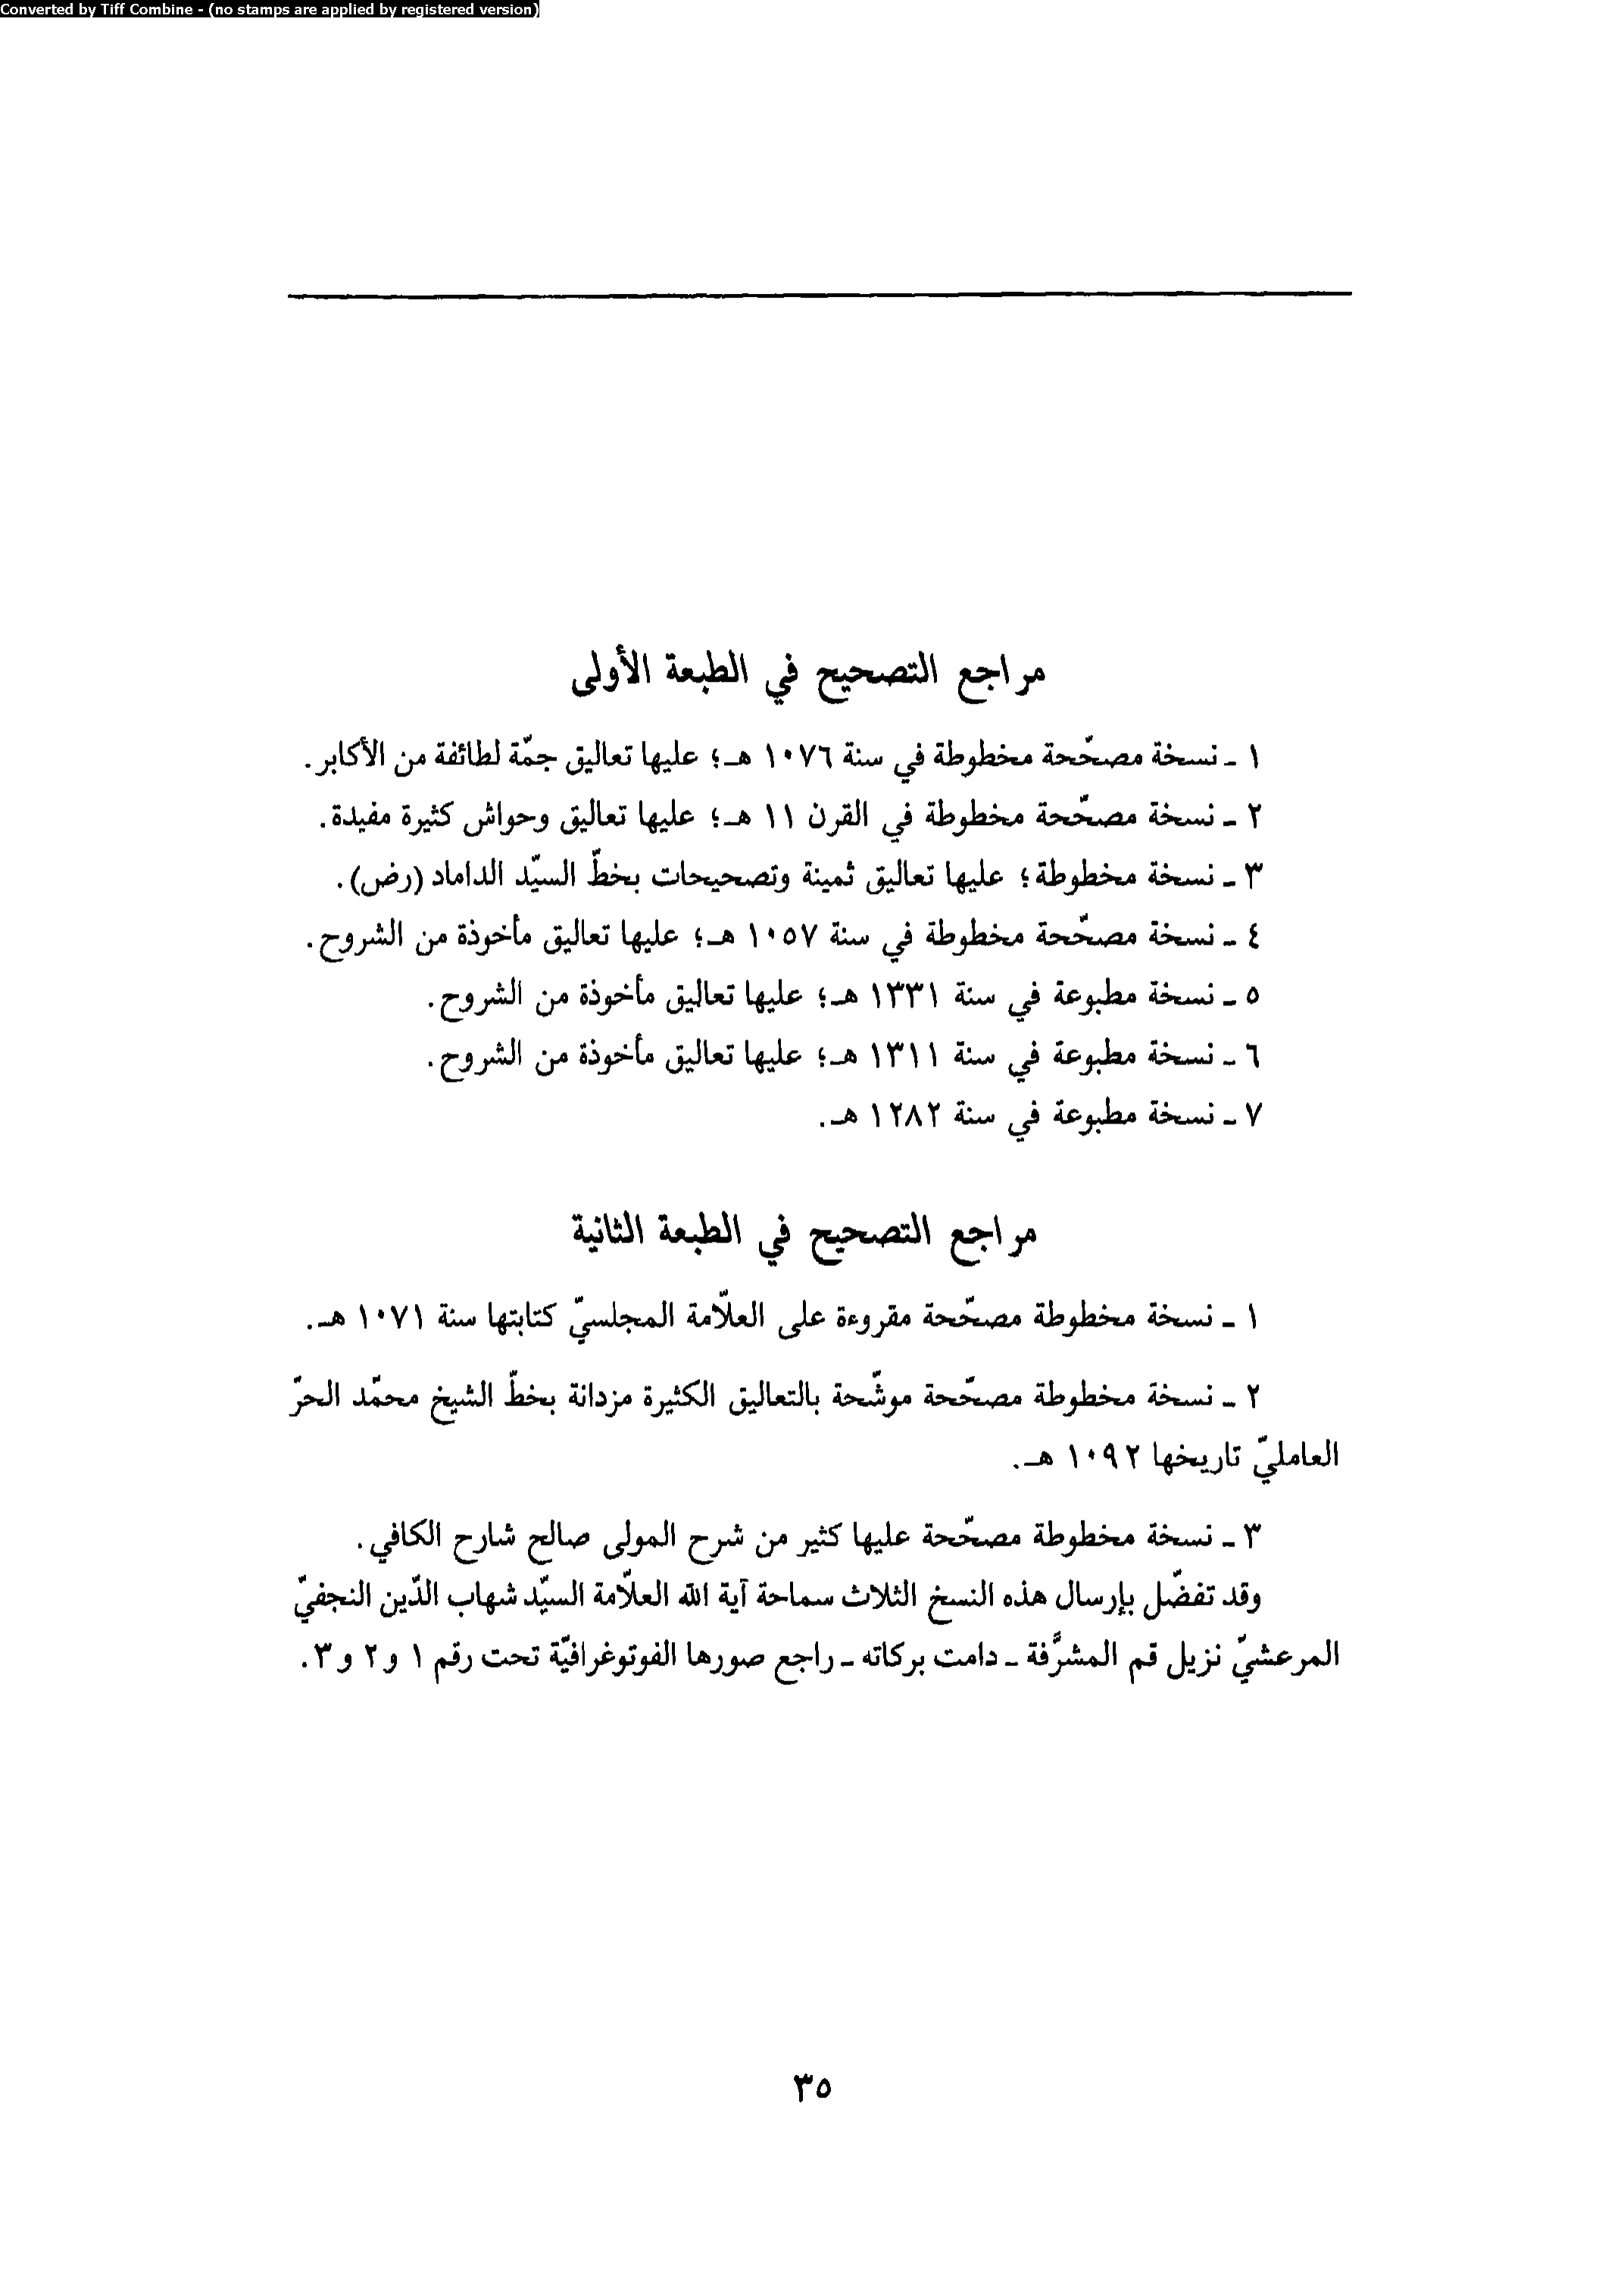 Converted by Tiff Combine - (no stamps are applied by registered version)
مراجع التصحيح في الطبعة الأولى
١ ـ نسخة مصحّحة مخطوطة في سنة ١٠٧٦ هـ؛ عليها تعاليق جمّة لطائفة من الأكابر.
٢ ـ نسخة مصحّحة مخطوطة في القرن ١١ هـ؛ عليها تعاليق وحواش كثيرة مفيدة.
٣ ـ نسخة مخطوطة؛ عليها تعاليق ثمينة وتصحيحات بخطّ السيّد الداماد (رض).
٤ ـ نسخة مصحّحة مخطوطة في سنة ١٠٥٧ هـ؛ عليها تعاليق مأخوذة من الشروح.
٥ ـ نسخة مطبوعة في سنة ١٣٣١ هـ؛ عليها تعاليق مأخوذة من الشروح.
٦ ـ نسخة مطبوعة في سنة ١٣١١ هـ؛ عليها تعاليق مأخوذة من الشروح.
٧ ـ نسخة مطبوعة في سنة ١٢٨٢ هـ.
مراجع التصحيح في الطبعة الثانية
١ ـ نسخة مخطوطة مصحّحة مقروءة على العلاّمة المجلسيّ كتابتها سنة ١٠٧١ هـ.
٢ ـ نسخة مخطوطة مصحّحة موشّحة بالتعاليق الكثيرة مزدانة بخطّ الشيخ محمّد الحرّ
العامليّ تاريخها ١٠٩٢ هـ.
٣ ـ نسخة مخطوطة مصحّحة عليها كثير من شرح المولى صالح شارح الكافي.
وقد تفضّل بإرسال هذه النسخ الثلاث سماحة آية الله العلاّمة السيّد شهاب الدّين النجفيّ
المرعشيّ نزيل قم المشرَّفة ـ دامت بركاته ـ راجع صورها الفوتوغرافيّة تحت رقم ١ و٢ و٣.
٣٥